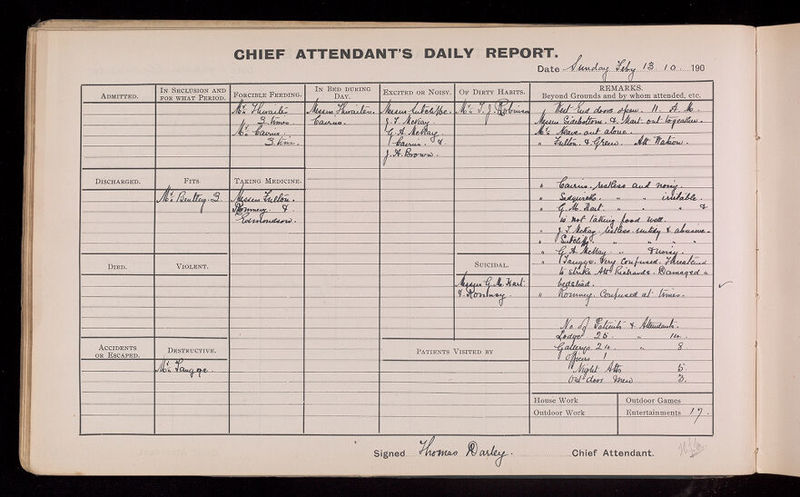 CHIEF ATTENDANT'S DAILY REPORT.
Date Sunday Feby 13 10 190
ADMITTED.
IN SECLUSION AND FOR WHAT PERIOD.
FORCIBLE FEEDING.
Mr. Thwaites
3 times.
Mr. Cairns.
3 times.
IN BED DURING DAY.
Messrs Thwaites.
Cairns.
EXCITED OR NOISY.
Messrs Sutcliffe.
J. T. McKay
G. A. McKay
Cairns. &
J. H. Brown.
OF DIRTY HABITS.
Mr. T. J. Robinson
REMARKS.
Beyond Grounds and by whom attended, etc.
West End doors open. 11. A. M.
Messrs Sidebottom. & Hart out together.
Mr. out alone.
" Fulton. & Green. Att
DISCHARGED.
FITS
Mr. Bentley. 3.
TAKING MEDICINE.
Messrs Fulton.
Romney. &
Edmondson.
" Cairns. restless and noisy.
" " " irritable.
" G. M. Hart. " " &
is not taking food well.
" J. T. McKay. restless. untidy & abusive.
" Sutcliffe. " " "
" G. A. McKay. " & noisy.
" Tangye. Very Confused. Threatened
to strike Att Richards. Damaged a
bedstead.
" Romney. Confused at times.
DIED.
VIOLENT.
SUICIDAL.
Messrs G. M. Hart.
& Romney.
No of Patients & Attendants.
Lodge 25 " 14.
Gallerys 24 " 8
Officers 1
Night Atts 5
Out door men 3.
ACCIDENTS OR ESCAPED.
DESTRUCTIVE.
Mr. Tangye.
PATIENTS VISITED BY
House Work
Outdoor Games
Outdoor Work
Entertainments 17.
Signed Thomas Darley. Chief Attendant.